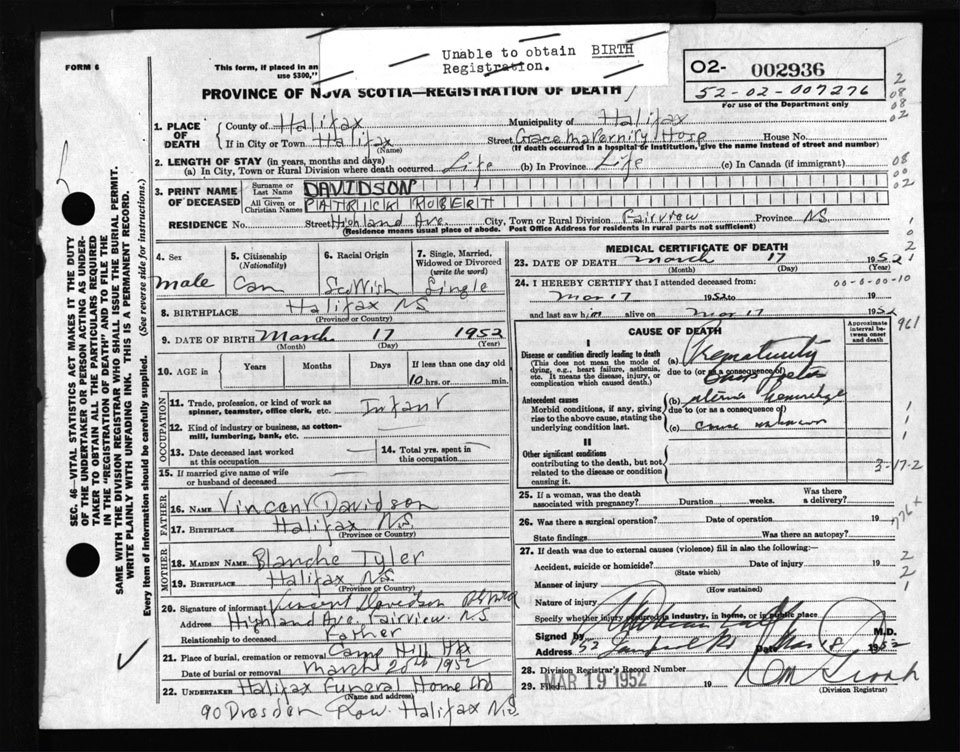 Unable to obtain BIRTH
Registration.
FORM 6
This form, if placed in an
use $300,"
O2- 002936
52-02-007276
For use of the Department only
PROVINCE OF NOVA SCOTIA—REGISTRATION OF DEATH
1. PLACE OF DEATH
County of Halifax Municipality of Halifax
If in City or Town Halifax Street Grace Maternity Hosp House No.
(Name) (If death occurred in a hospital or institution, give the name instead of street and number)
2. LENGTH OF STAY (in years, months and days)
(a) In City, Town or Rural Division where death occurred Life (b) In Province Life (c) In Canada (if immigrant)
3. PRINT NAME OF DECEASED
Surname or Last Name DAVIDSON
All Given or Christian Names PATRICK ROBERT
RESIDENCE No. Street Highland Ave. City, Town or Rural Division Fairview Province N.S.
(Residence means usual place of abode. Post Office Address for residents in rural parts not sufficient)
4. Sex
Male
5. Citizenship (Nationality)
Can
6. Racial Origin
Scottish
7. Single, Married, Widowed or Divorced (write the word)
Single
8. BIRTHPLACE Halifax N.S
(Province or Country)
9. DATE OF BIRTH March 17 1952
(Month) (Day) (Year)
10. AGE in Years Months Days If less than one day old
10 hrs. or min.
OCCUPATION
11. Trade, profession, or kind of work as spinner, teamster, office clerk, etc. Infant
12. Kind of industry or business, as cotton-mill, lumbering, bank, etc.
13. Date deceased last worked at this occupation
14. Total yrs. spent in this occupation
15. If married give name of wife or husband of deceased
FATHER
16. NAME Vincent Davidson
17. BIRTHPLACE Halifax N.S.
(Province or Country)
MOTHER
18. MAIDEN NAME Blanche Tyler
19. BIRTHPLACE Halifax N.S.
(Province or Country)
20. Signature of informant Vincent Davidson
Address Highland Ave. Fairview. N.S
Relationship to deceased Father
21. Place of burial, cremation or removal Camp Hill Hfx
Date of burial or removal March 20th 1952
22. UNDERTAKER Halifax Funeral Home Ltd
(Name and address)
90 Dresden Row. Halifax N.S.
MEDICAL CERTIFICATE OF DEATH
23. DATE OF DEATH March 17 1952
(Month) (Day) (Year)
24. I HEREBY CERTIFY that I attended deceased from:
00-0-00-10
Mar 17 1952 to 19
and last saw him alive on Mar 17 1952
CAUSE OF DEATH
Approximate interval between onset and death
I
Disease or condition directly leading to death (a) Prematurity
(This does not mean the mode of dying, e.g., heart failure, asthenia, etc. It means the disease, injury, or complication which caused death.)
due to (or as a consequence of)
Antecedent causes
Morbid conditions, if any, giving rise to the above cause, stating the underlying condition last.
(b)
due to (or as a consequence of)
(c) cause unknown
II
Other significant conditions
contributing to the death, but not related to the disease or condition causing it.
3-17-2
25. If a woman, was the death associated with pregnancy? Duration weeks. Was there a delivery?
26. Was there a surgical operation? Date of operation 19
State findings Was there an autopsy?
27. If death was due to external causes (violence) fill in also the following:
Accident, suicide or homicide? Date of injury 19
(State which)
Manner of injury
(How sustained)
Nature of injury
Specify whether injury occurred in industry, in home, or in public place
Signed by M.D.
Address Date 1952
28. Division Registrar's Record Number
29. Filed MAR 19 1952 19
(Division Registrar)
961
776+
SEC. 46 VITAL STATISTICS ACT MAKES IT THE DUTY
OF THE UNDERTAKER OR PERSON ACTING AS UNDER-
TAKER TO OBTAIN ALL THE PARTICULARS REQUIRED
IN THE "REGISTRATION OF DEATH" AND TO FILE THE
SAME WITH THE DIVISION REGISTRAR WHO SHALL ISSUE THE BURIAL PERMIT.
WRITE PLAINLY WITH UNFADING INK. THIS IS A PERMANENT RECORD.
Every item of information should be carefully supplied. (See reverse side for instructions.)